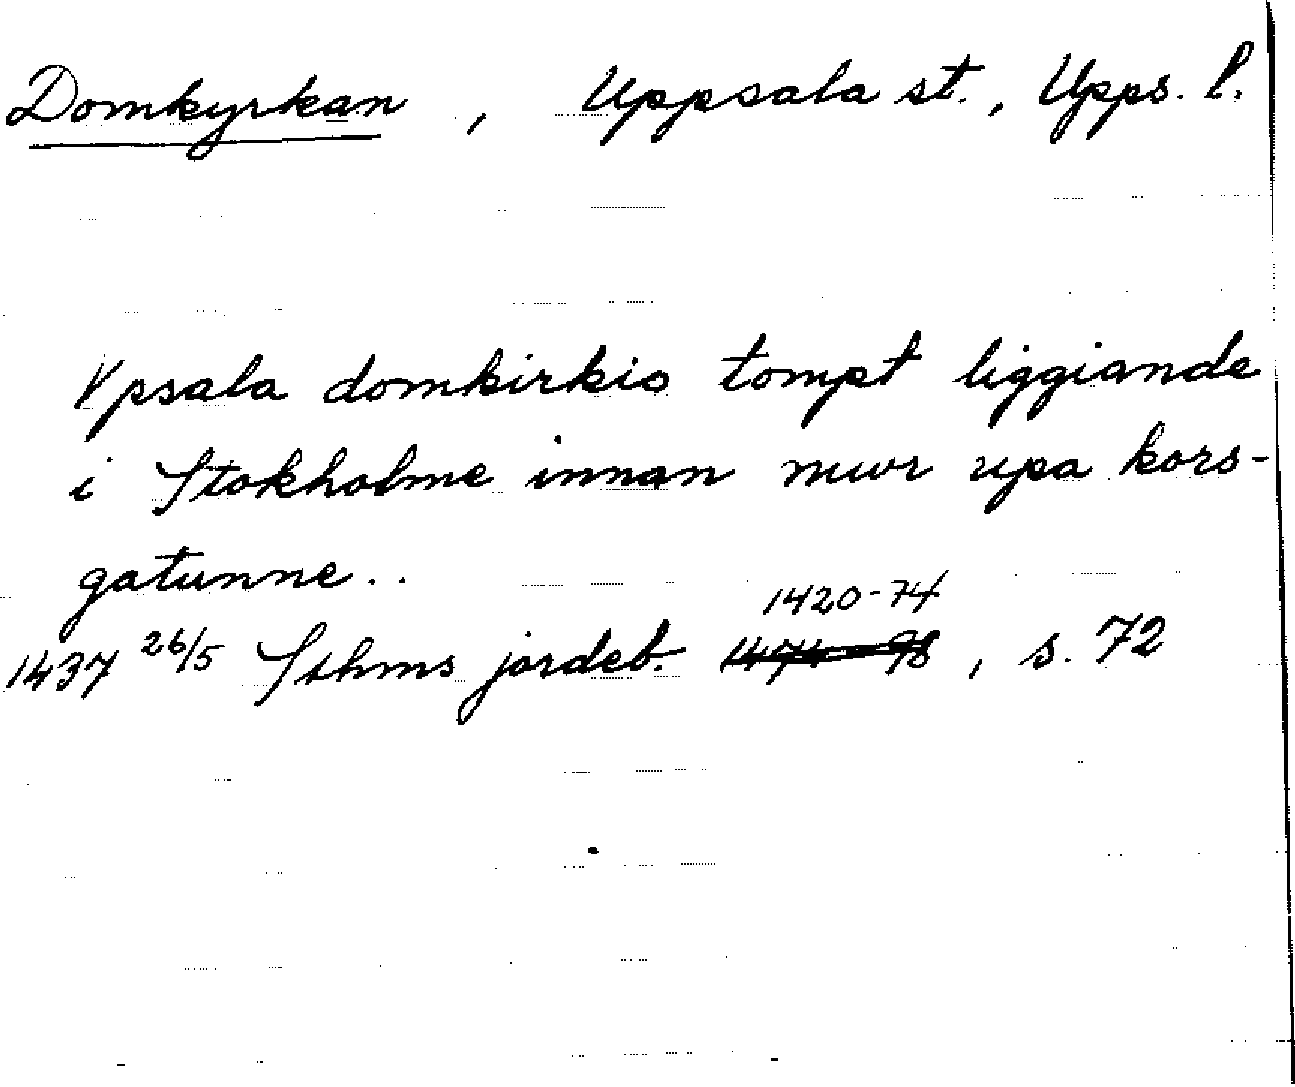 Domkyrkan, Uppsala st., Upps. l.
Vpsala domkirkio tompt liggiande
i Stokholme innan mwr upa kors-
gatunne..
1420-74
1437 26/5 Sthms jordeb. 1474-98, s. 72